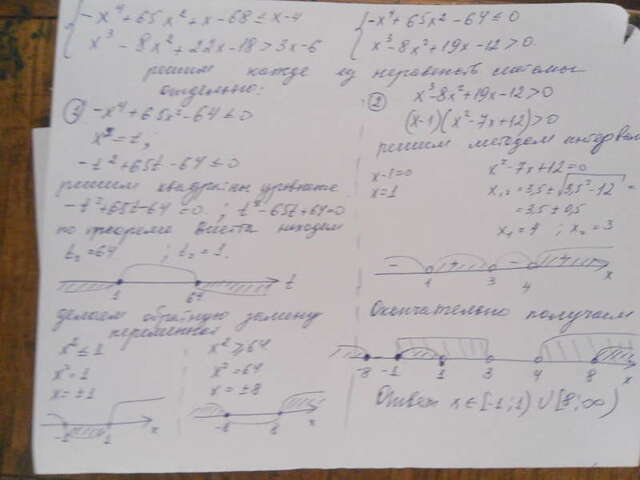 -x⁴+65x²+x-68≤x-4
x³-8x²+22x-18>3x-6
-x⁴+65x²-64≤0
x³-8x²+19x-12>0
решим каждое из неравенств системы
отдельно:
① -x⁴+65x²-64≤0
x²=t;
-t²+65t-64≤0
решим квадратное уравнение
-t²+65t-64=0; t²-65t+64=0
по теореме Виета находим
t₂=64; t₂=1.
1 64 t
делаем обратную замену
переменной
x²≤1
x²=1
x=±1
-1 1 x
x²≥64
x²=64
x=±8
-8 8 x
②
x³-8x²+19x-12>0
(x-1)(x²-7x+12)>0
решим методом интервал
x-1=0
x=1
x²-7x+12=0
x₁,₂=3,5±√3,5²-12 =
=3,5±0,5
x₁=4; x₂=3
- + - +
1 3 4 x
Окончательно получаем
-8 -1 1 3 4 8 x
Ответ x∈[-1;1)∪[8;∞)